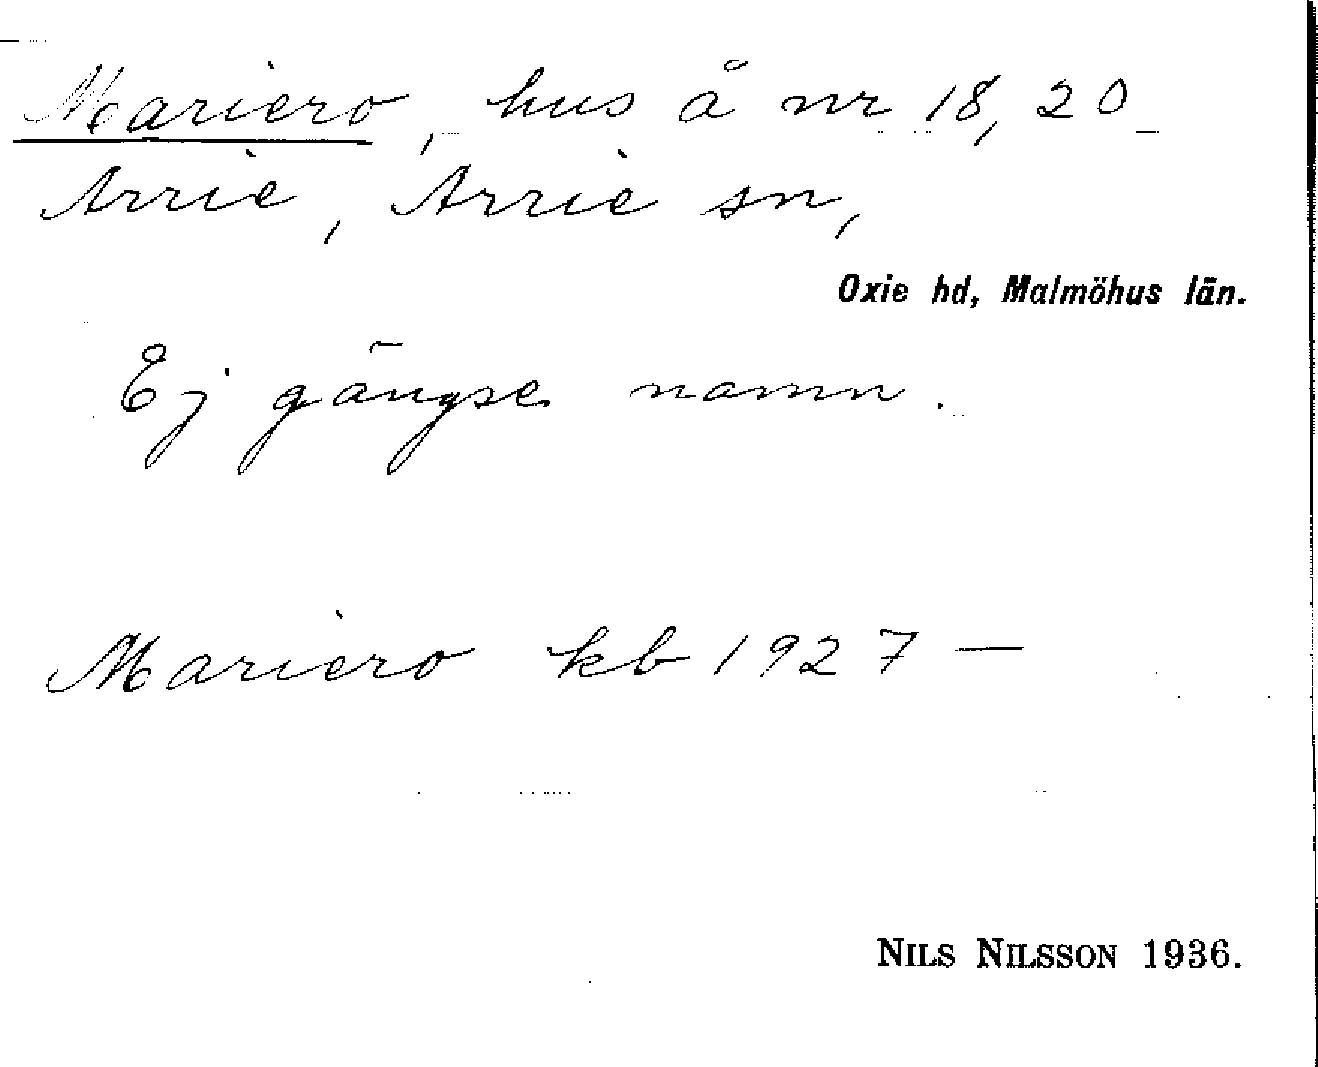 Mariero, hus å nr 18, 20
Arrie, Arrie sn,
Oxie hd, Malmöhus län.
Ej gängse namn.
Mariero kb 1927 —
NILS NILSSON 1936.